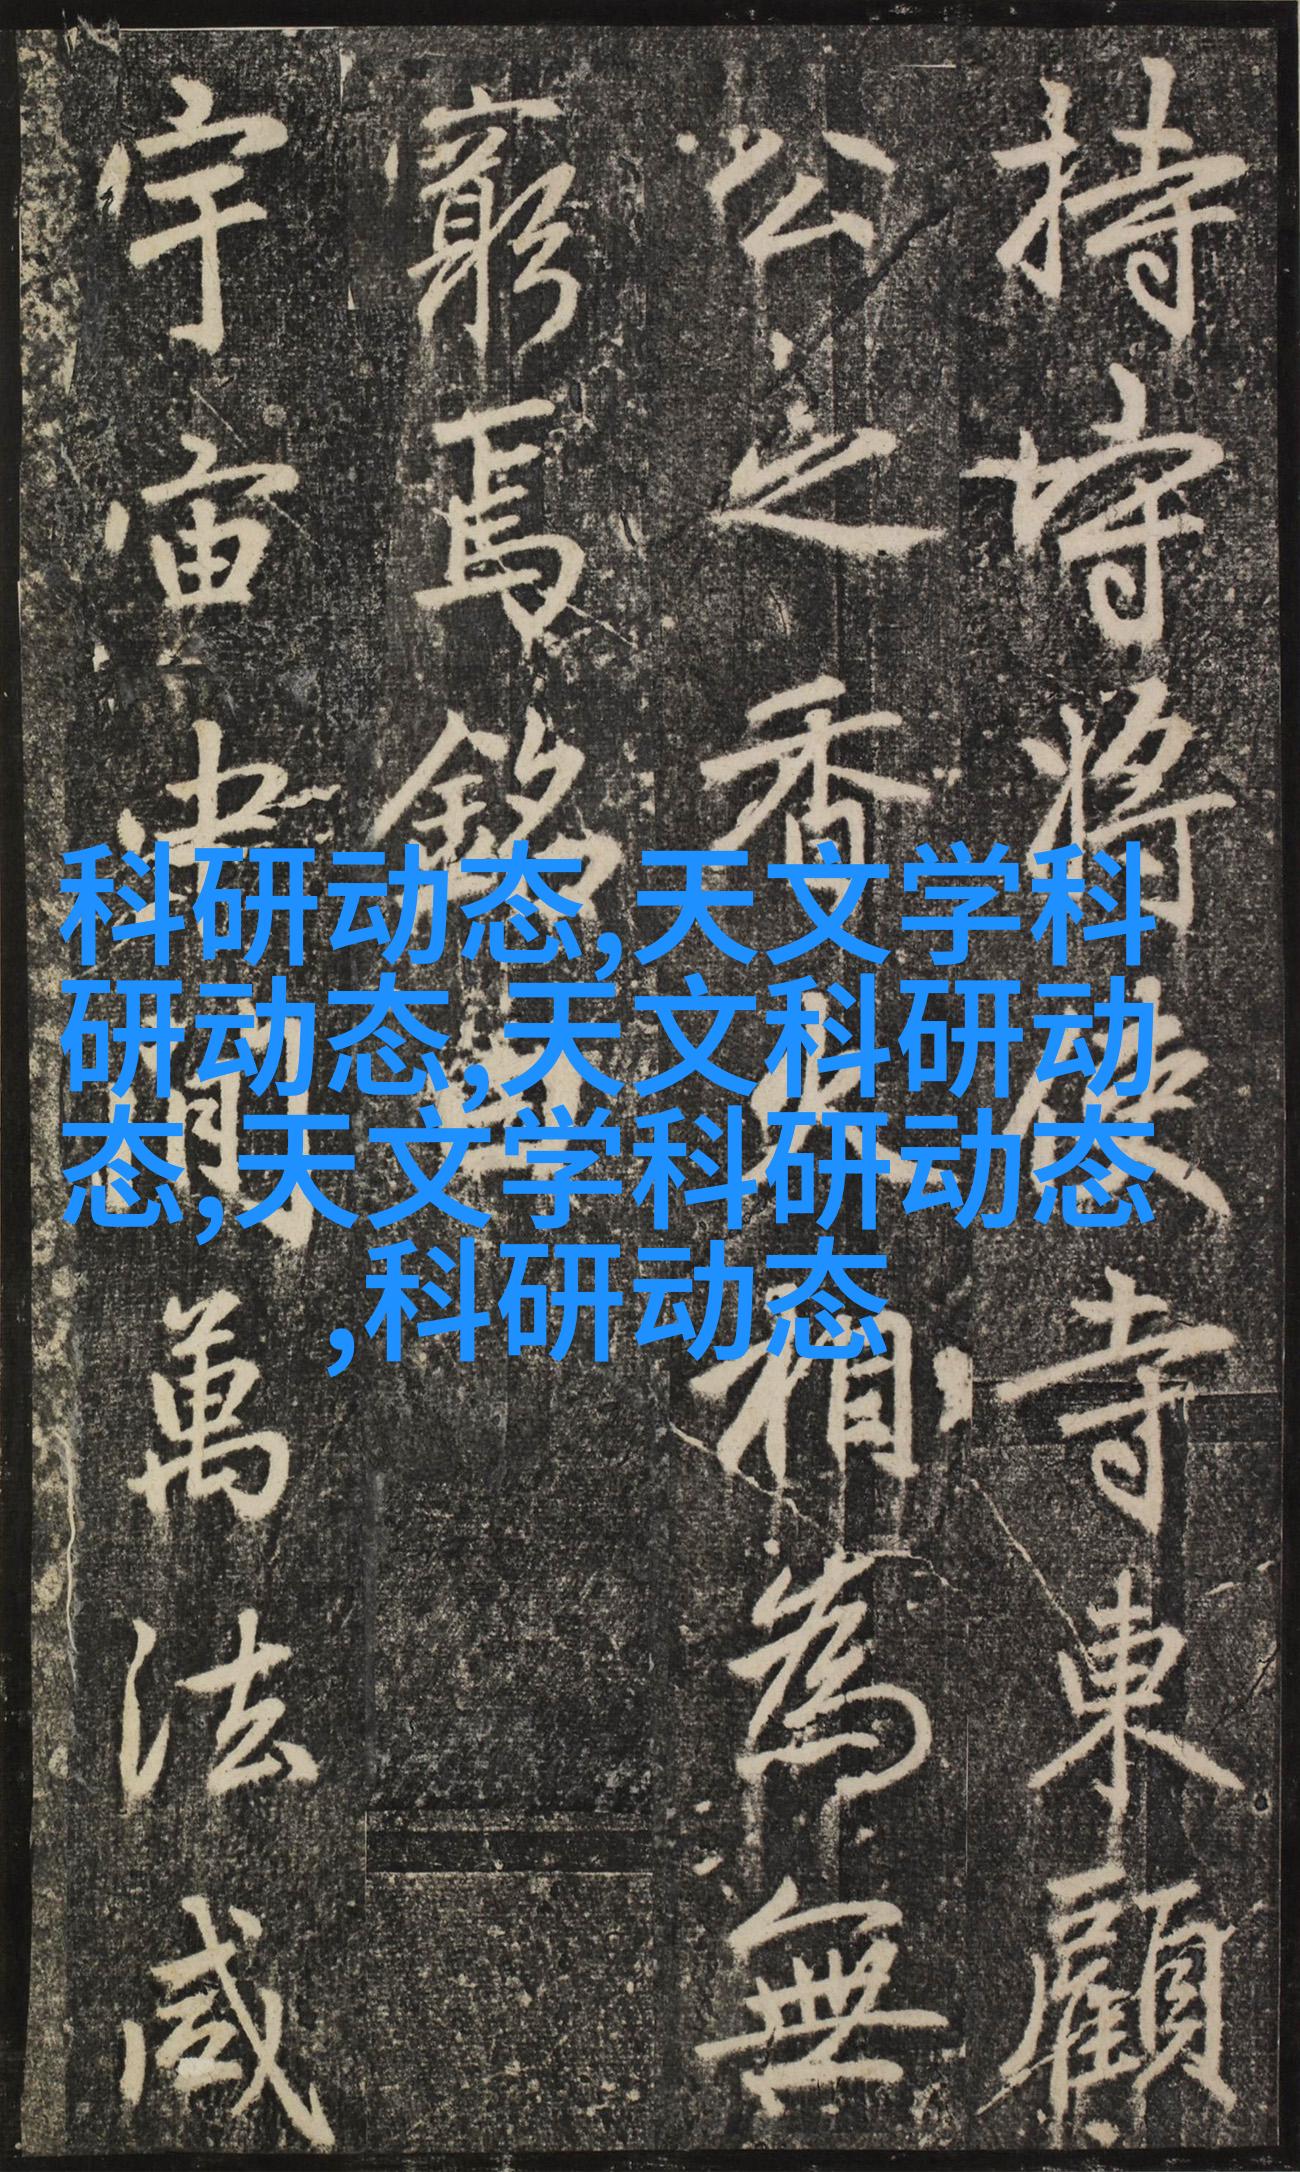 持守将废寺東顧
公之香火相為無
窮焉銘曰
宇宙中間萬法咸
科研动态,天文学科
研动态,天文科研动
态,天文学科研动态
,科研动态